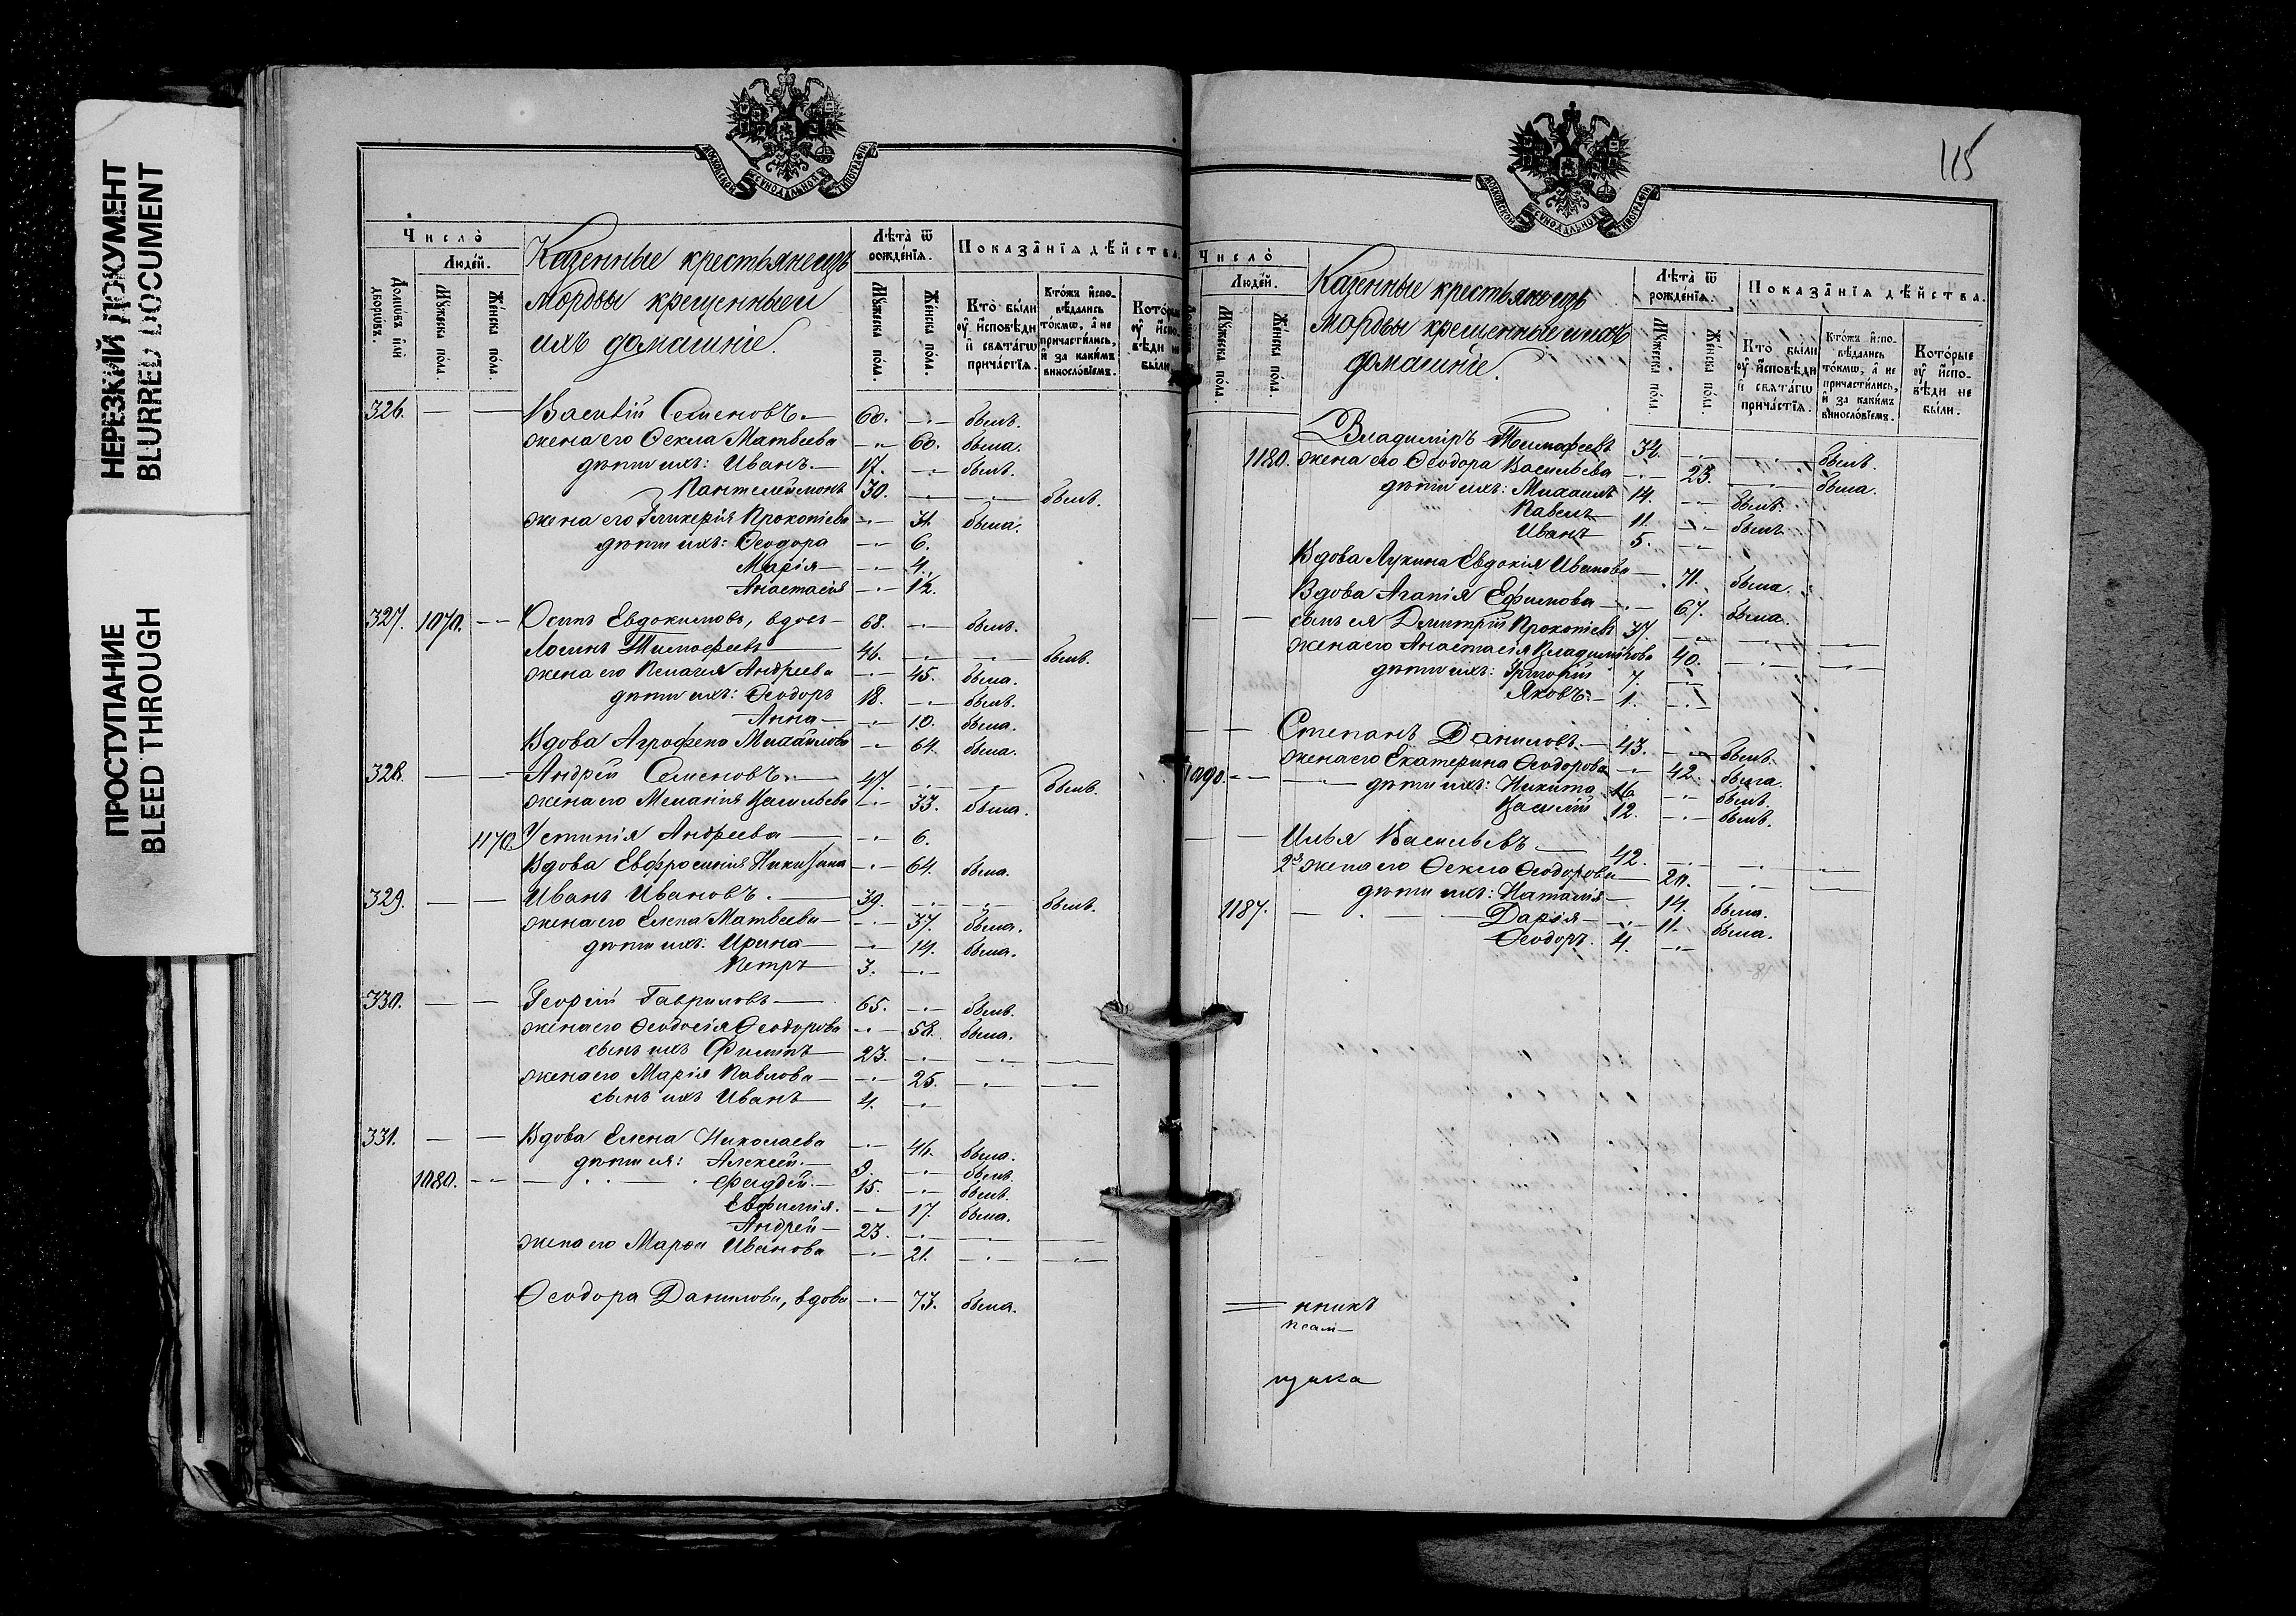 НЕРЕЗКИЙ ДОКУМЕНТ
BLURRED DOCUMENT
ПРОСТУПАНИЕ
BLEED THROUGH
МОСКОВСКОЙ СѴНОДАЛЬНОЙ ТИПОГРАФІИ
Число̀
Домѡвъ и҆лѝ дворѡвъ.
Люде́й.
Мꙋ́жеска по́ла.
Же́нска по́ла.
Казенные крестьяне изъ
мордвы крещенные и
ихъ домашніе.
Лѣта̀ ѿ рожде́нїѧ.
Мꙋ́жеска по́ла.
Же́нска по́ла.
Показа̑нїѧ дѣ́йства.
Кто̀ бы́ли ᲂу҆ и҆́сповѣди и҆ свѧта́гѡ прича́стїѧ.
Кто́жъ и҆спо-вѣ́дались то́кмѡ, а҆ не причасти́лись, и҆ за каки́мъ виносло́вїемъ.
326. — — Василій Семеновъ. — 60. — былъ.
жена его Ѳекла Матвеева — 60. была.
дѣти ихъ: Иванъ. — 17. — былъ.
Пантелеймонъ 30. — — былъ.
жена его Гликерія Прокопіева — 31. была.
дѣти ихъ: Ѳеодора — 6.
Марія — 4.
Анастасія — 1½.
327. 1070. — Осипъ Евдокимовъ, вдовъ — 68. — былъ.
Логинъ Тимофеевъ 46. — — былъ.
жена его Пелагея Андреева — 45. была.
дѣти ихъ: Ѳеодоръ 18. — былъ.
Анна — 10. была.
Вдова Агрофена Михайлова — 64. была.
328. — — Андрей Семеновъ. — 47. — — былъ.
жена его Меланія Васильева — 33. была.
1170. Устинія Андреева — 6.
Вдова Евфросинія — 64. была.
329. — — Иванъ Ивановъ. — 39. — — былъ.
жена его Елена Матвеева — 37. была.
дѣти ихъ: Ирина — 14. была.
Петръ 3. —
330. — — Георгій Гавриловъ — 65. — былъ.
жена его Ѳеодосія Ѳеодорова — 58. была.
сынъ ихъ Филипъ 23. — — —
жена его Марія Павлова — 25. — —
сынъ ихъ Иванъ 4. —
331. — — Вдова Елена Николаева — 46. была.
дѣти ея: Алексей. — 9. — былъ.
1080. — — Фаддей. — 15. — былъ.
Евфимія. — 17. была.
Андрей — 23. — — —
жена его Марѳа Иванова — 21. — —
Ѳеодора Данилова, вдова — 73. была.
115
МОСКОВСКОЙ СѴНОДАЛЬНОЙ ТИПОГРАФІИ
Число̀
Люде́й.
Мꙋ́жеска по́ла.
Же́нска по́ла.
Казенные крестьяне изъ
мордвы крещенные и ихъ
домашніе.
Лѣта̀ ѿ рожде́нїѧ.
Мꙋ́жеска по́ла.
Же́нска по́ла.
Показа̑нїѧ дѣ́йства.
Кто̀ бы́ли ᲂу҆ и҆́сповѣди и҆ свѧта́гѡ прича́стїѧ.
Кто́жъ и҆спо-вѣ́дались то́кмѡ, а҆ не причасти́лись, и҆ за каки́мъ виносло́вїемъ.
Кото́рые ᲂу҆ и҆спо-вѣди не бы́ли.
Владиміръ Тимофеевъ 34. — — былъ.
1180. жена его Ѳеодора Васильева — 23. — была.
дѣти ихъ: Михаилъ 14. — былъ.
Павелъ 11. — былъ.
Иванъ 5. —
Вдова Лукина Евдокія Иванова — 71. была.
Вдова Агапія Ефимова — 67. была.
— — сынъ ея Димитрій Прокопіевъ 37. — — —
жена его Анастасія Владимірова 40. — —
дѣти ихъ: Григорій 7. —
Яковъ. — 1. —
— — Степанъ Даниловъ. — 43. — былъ.
жена его Екатерина Ѳеодорова — 42. была.
1090. — — дѣти ихъ: Никита 16. — былъ.
Василій 12. — былъ.
— — Илья Васильевъ — 42. — — —
2я жена его Ѳекла Ѳеодорова — 20. — —
дѣти ихъ: Наталія — 14. была.
1187. — Дарія — 11. была.
Ѳеодоръ. 4. —
нникъ
псал—
щика